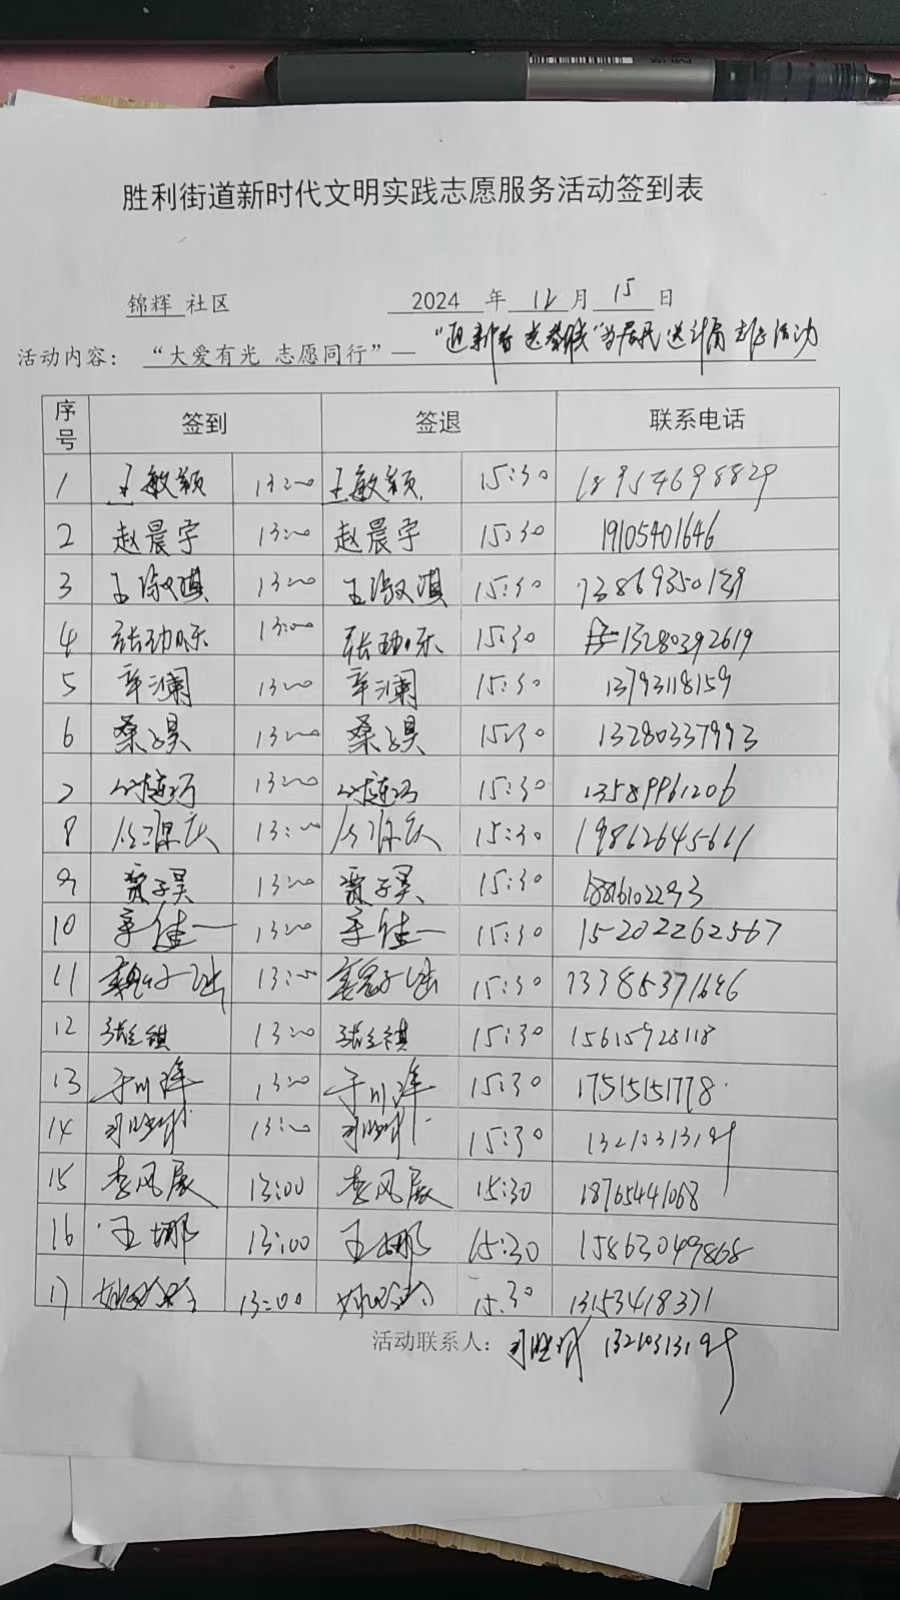 胜利街道新时代文明实践志愿服务活动签到表
锦辉 社区 2024 年 12 月 15 日
活动内容： “大爱有光 志愿同行”— “迎新春 送 为居民送 活动
序号 签到 签退 联系电话
1 王敏颖 13:00 王敏颖 15:30 18954698829
2 赵晨宇 13:00 赵晨宇 15:30 19105401646
3 王淑琪 13:00 王淑琪 15:30 13869350139
4 张 乐 13:00 张 乐 15:30 13280392619
5 辛澜 13:00 辛澜 15:30 13793118159
6 桑子昊 13:00 桑子昊 15:30 13280337993
7 13:00 15:30 13589961206
8 丛源庆 13:00 丛源庆 15:30 19862645611
9 贾子昊 13:00 贾子昊 15:30 18816102293
10 辛佳一 13:00 辛佳一 15:30 15202262567
11 魏子 13:00 魏子 15:30 13385371646
12 张 祺 13:00 张 祺 15:30 15615928118
13 于川洋 13:00 于川洋 15:30 17515151778
14 13:00 15:30
15 李风展 13:00 李风展 15:30 18765441068
16 王娜 13:00 王娜 15:30 15863049868
17 姚玲玲 13:00 姚玲玲 15:30 13153418371
活动联系人：